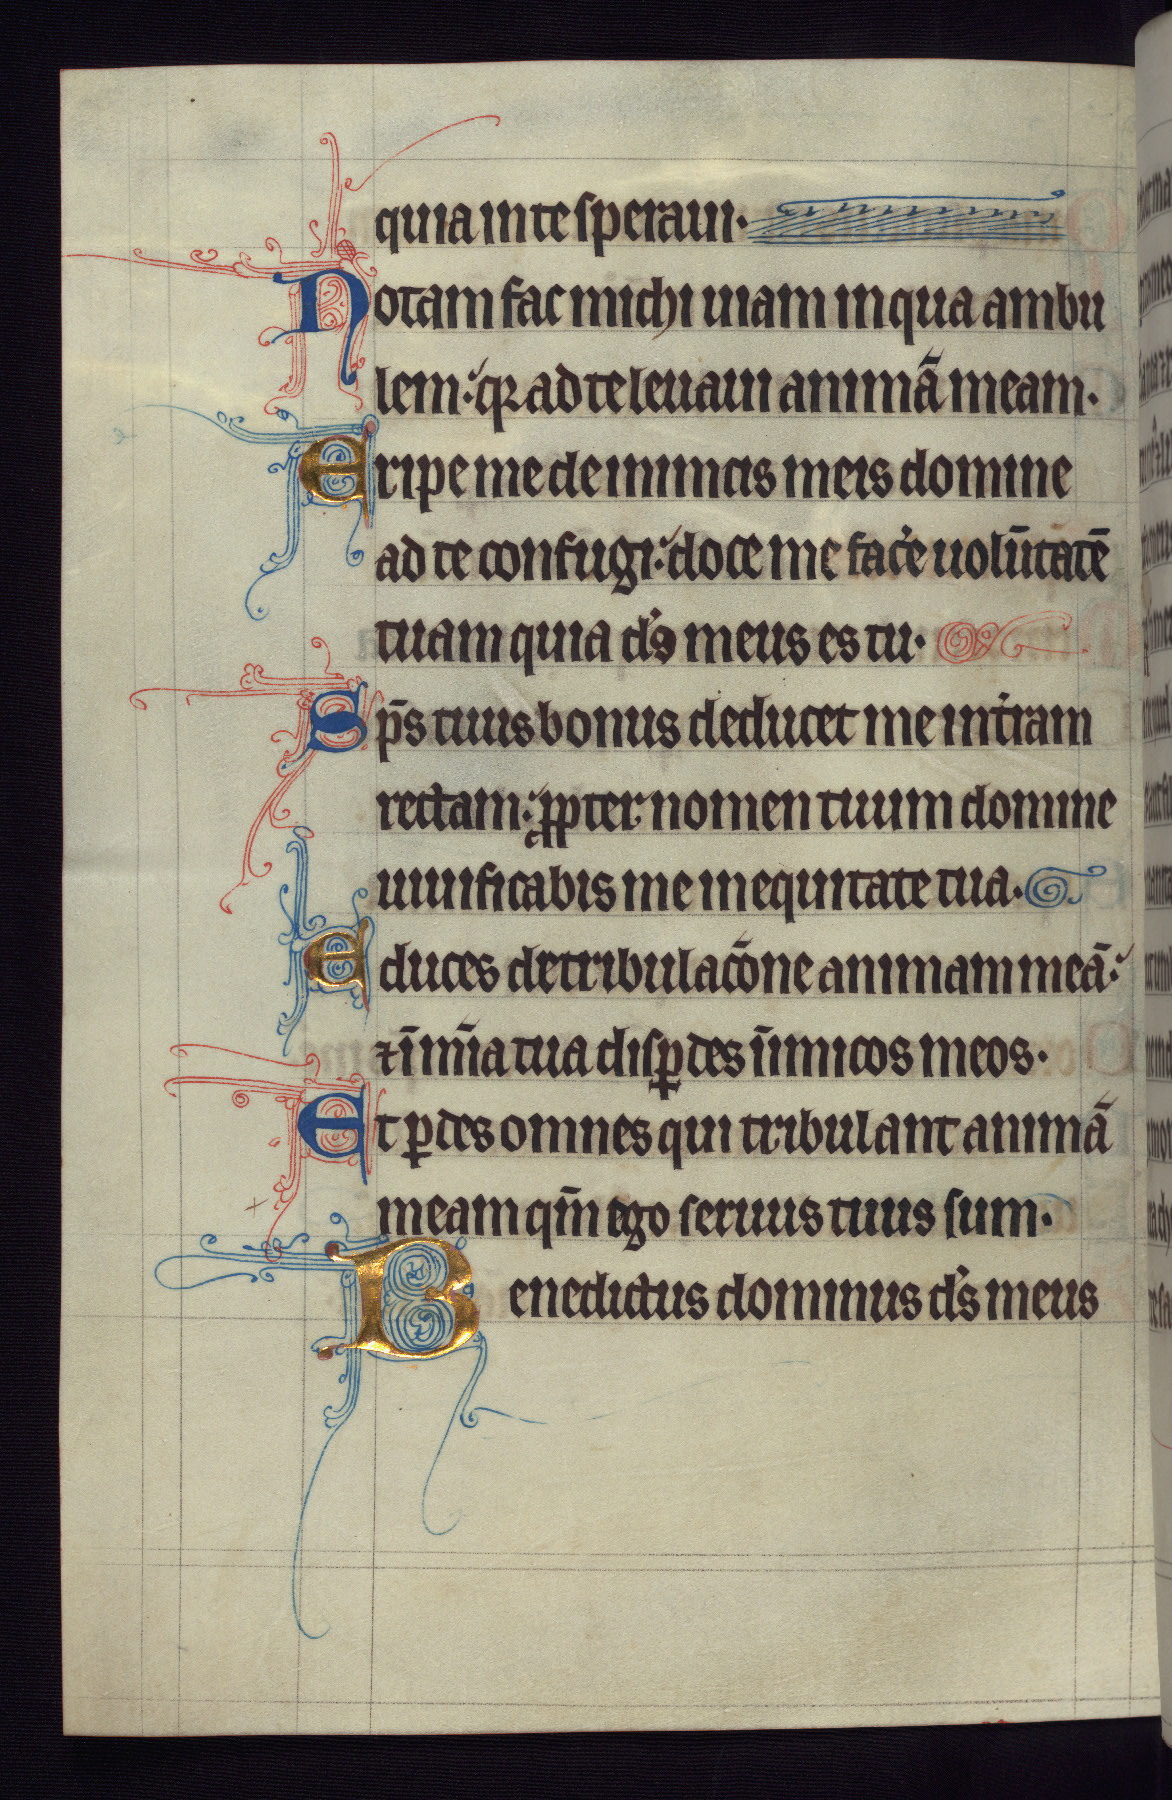 quia in te speraui·
Notam fac michi uiam in qua ambu
lem: qꝛ ad te leuaui animã meam·
Eripe me de inimicis meis domine
ad te confugi: doce me fac̉e uolũtatẽ
tuam quia ds̉ meus es tu·
Sp̄s tuus bonus deducet me in t̉ram
rectam: ꝓpter nomen tuum domine
uiuificabis me in equitate tua·
Educes de tribulac̄one animam meã:
⁊ ĩ mĩa tua disꝑdes ĩimicos meos·
Et ꝑdes omnes qui tribulant animã
meam qm̄ ego seruus tuus sum·
Benedictus dominus ds̉ meus